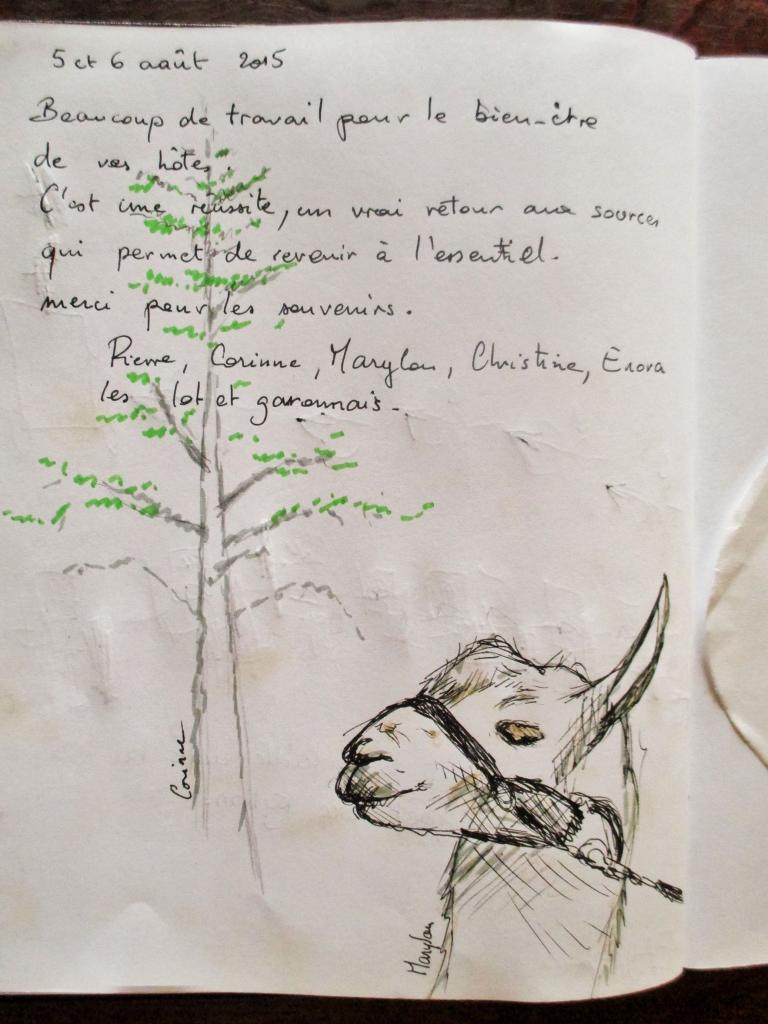 5 et 6 août 2015
Beaucoup de travail pour le bien-être
de vos hôtes.
C'est une réussite, un vrai retour aux sources
qui permet de revenir à l'essentiel.
merci pour les souvenirs.
Pierre, Corinne, Marylou, Christine, Enora
les lot et garonnais.
Corinne
Marylou